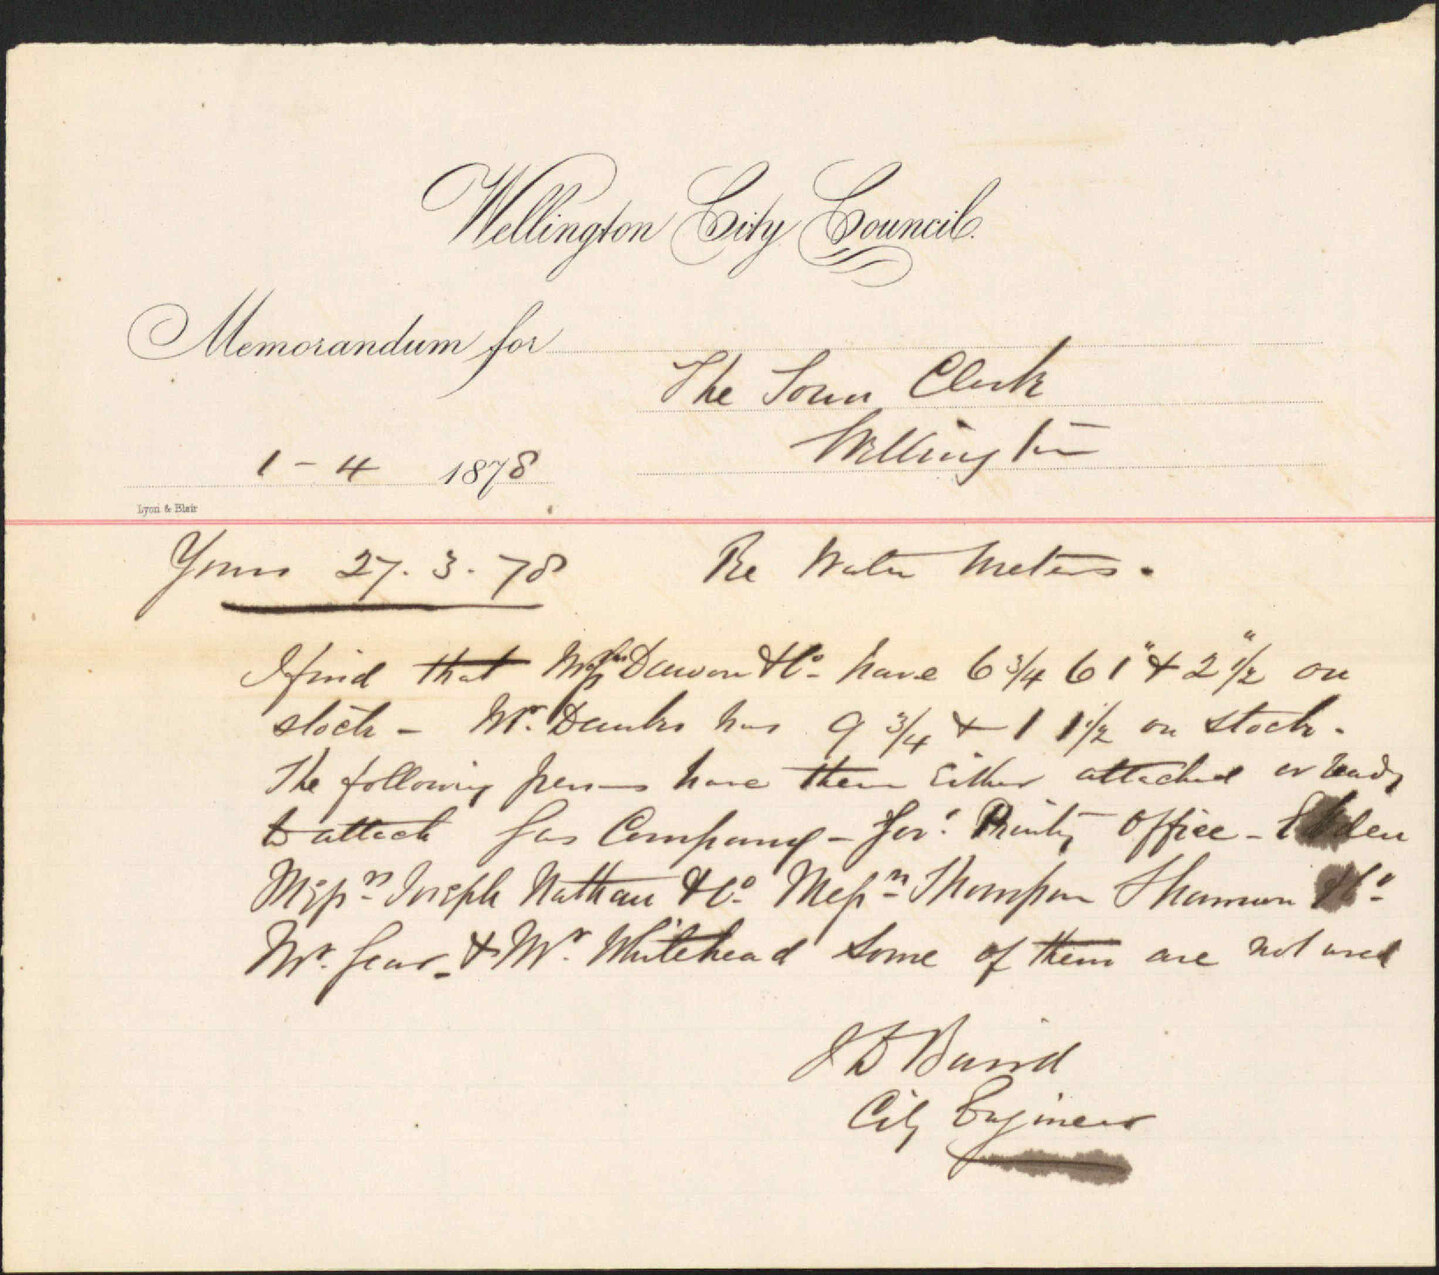 Wellington City Council.
Memorandum for
The Town Clerk
Wellington
1 - 4 1878
Lyon & Blair
Yours 27. 3. 78 Re Water Meters.
I find that Messrs Dawson & Co. have 6 3/4 6 1" & 2 1/2" on
stock - Mr. Danks has 9 3/4 & 1 1 1/2 on stock.
The following persons have them either attached or ready
to attach Gas Company - Gov.t Printg Office -
Messrs. Joseph Nathan & Co. Messrs. Thompson Shannon & Co.
Mr. Gear. & Mr. Whitehead some of them are not used
J D Baird
City Engineer